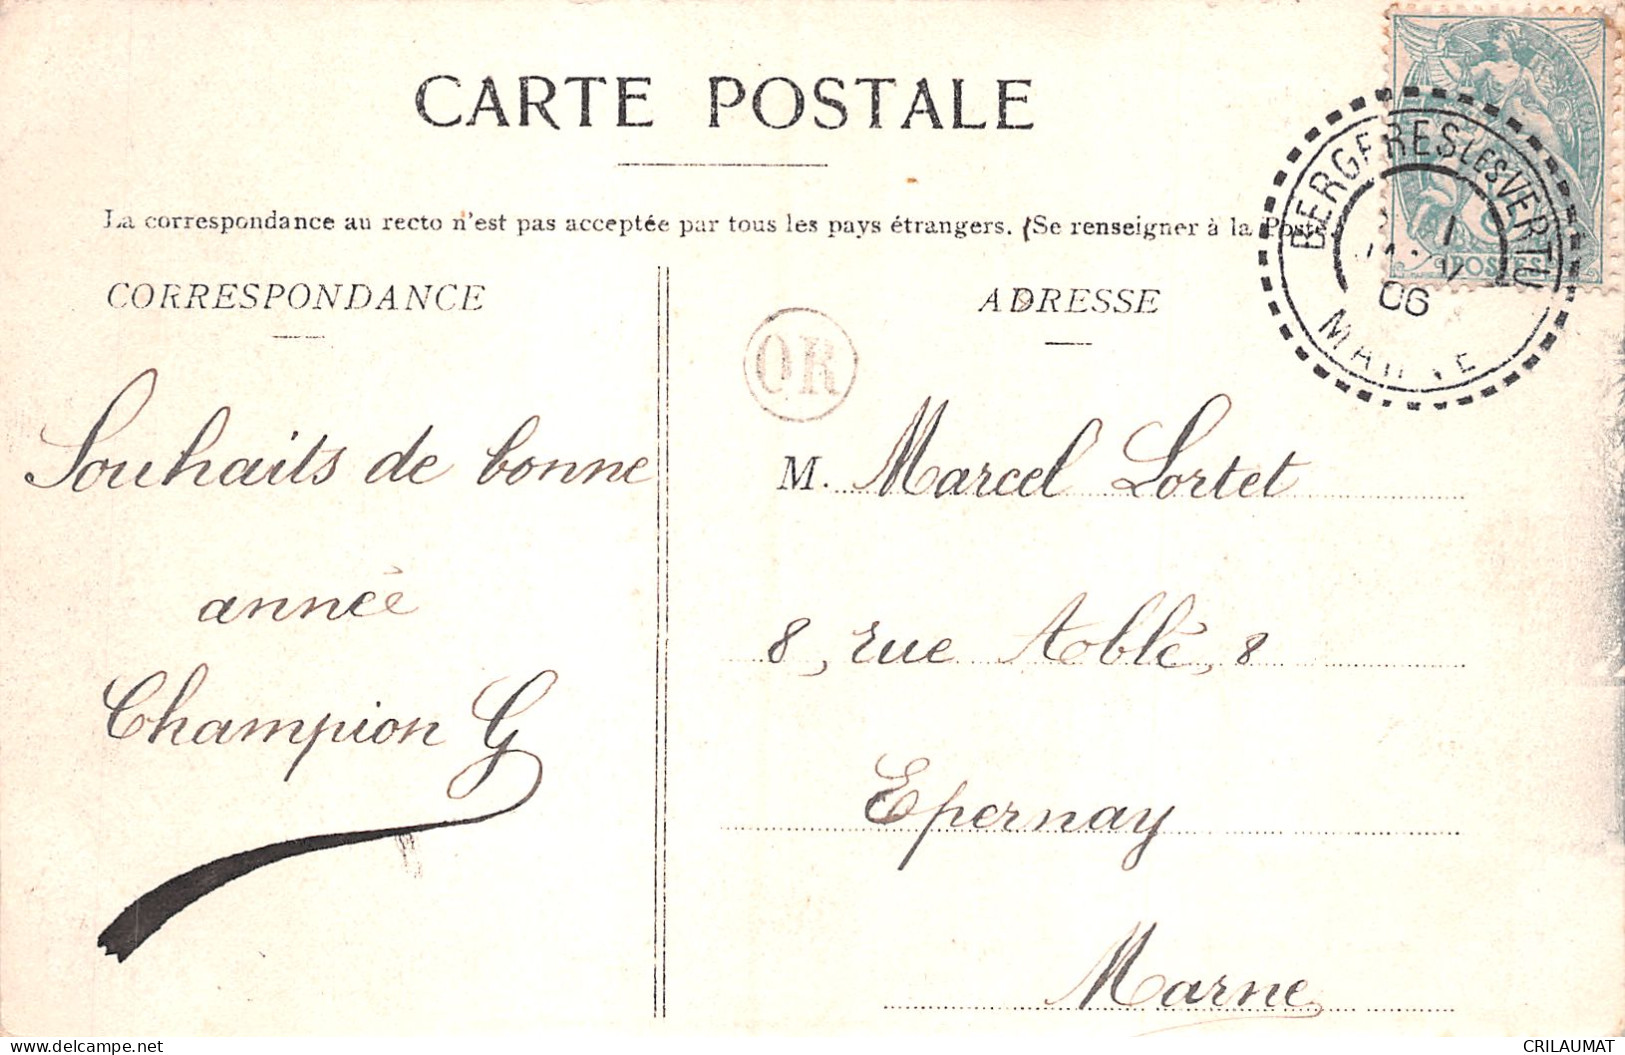 CARTE POSTALE
La correspondance au recto n'est pas acceptée par tous les pays étrangers. (Se renseigner à la Poste
CORRESPONDANCE
ADRESSE
BERGERES LES VERTU
06
MARNE
POSTES
OR
Souhaits de bonne
année
Champion G
M. Marcel Lortet
8, rue Ablé, 8
Epernay
Marne
CRILAUMAT